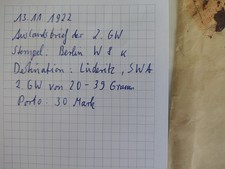 13.11.1922
Auslandsbrief der 2. GW
Stempel: Berlin W 8 k
Destination: Lüderitz, SWA
2. GW von 20-39 Gramm
Porto: 30 Mark